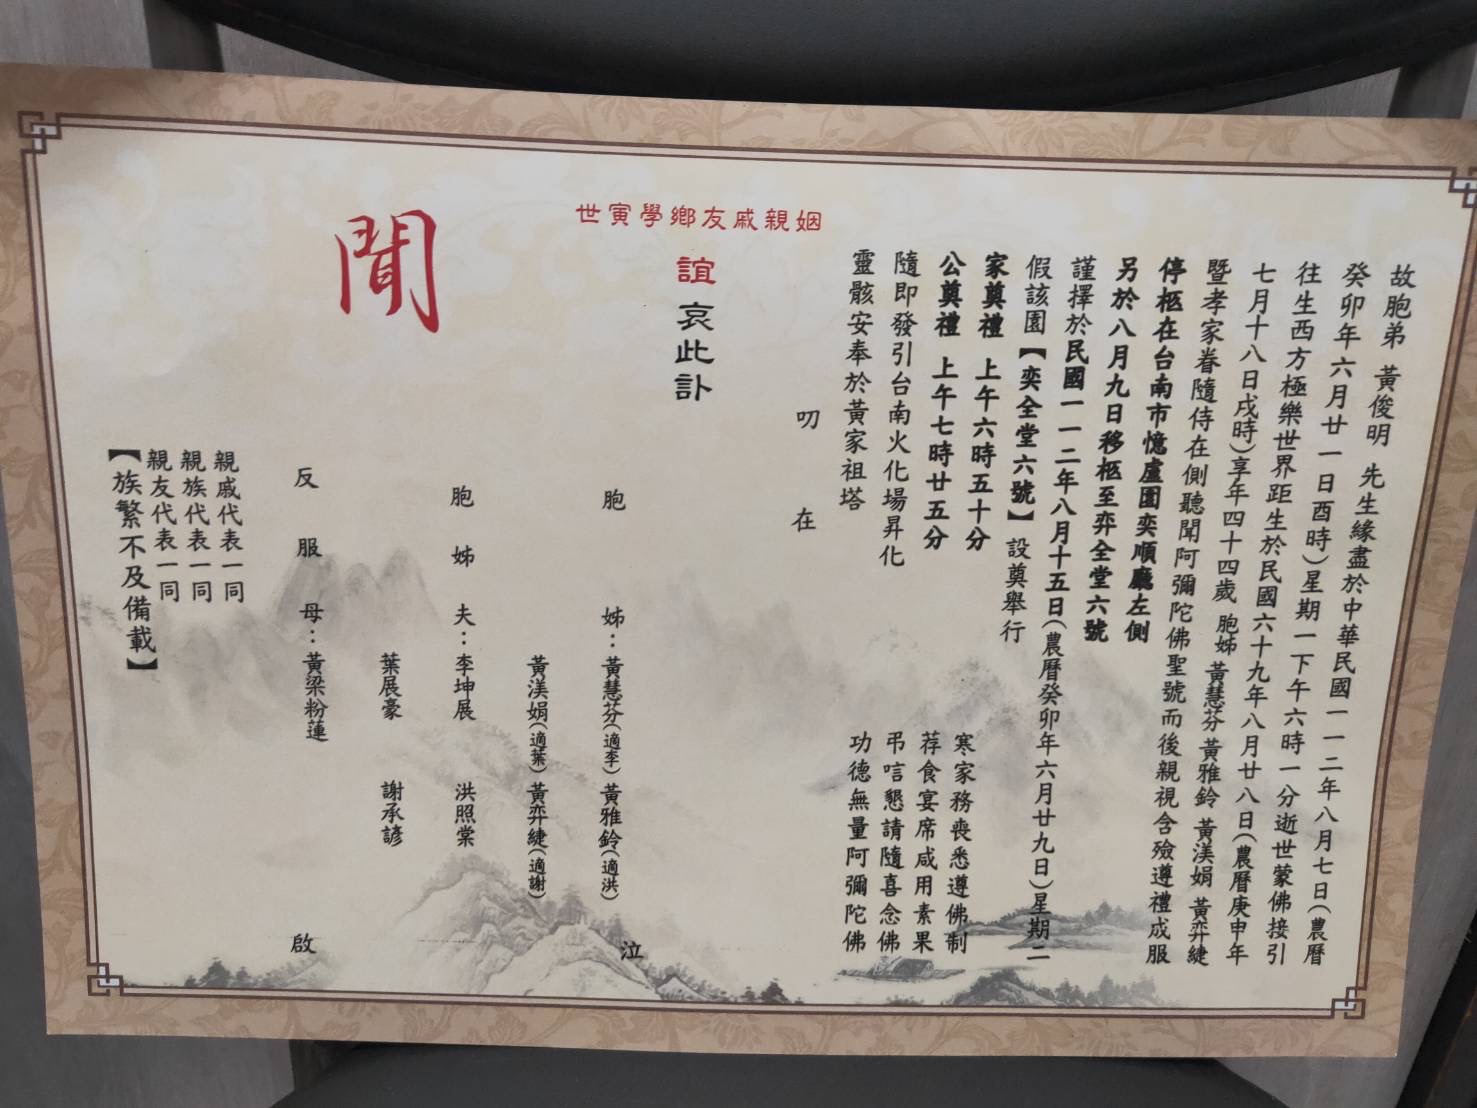 故胞弟 黃俊明 先生緣盡於中華民國一一二年八月七日(農曆
癸卯年六月廿一日酉時)星期一下午六時一分逝世蒙佛接引
往生西方極樂世界距生於民國六十九年八月廿八日(農曆庚申年
七月十八日戌時)享年四十四歲 胞姊 黃慧芬 黃雅鈴 黃渼娟 黃弈緁
暨孝家眷隨侍在側聽聞阿彌陀佛聖號而後親視含殮遵禮成服
停柩在台南市憶盧園奕順廳左側
另於八月九日移柩至弈全堂六號
謹擇於民國一一二年八月十五日(農曆癸卯年六月廿九日)星期二
假該園【奕全堂六號】設奠舉行
家奠禮 上午六時五十分
公奠禮 上午七時廿五分
隨即發引台南火化場昇化
靈骸安奉於黃家祖塔
寒家務喪悉遵佛制
荐食宴席咸用素果
弔唁懇請隨喜念佛
功德無量阿彌陀佛
叨在
姻親戚友鄉學寅世
誼哀此訃
聞
胞姊:黃慧芬(適李) 黃雅鈴(適洪)
黃渼娟(適葉) 黃弈緁(適謝)
泣
胞姊夫:李坤展 洪照棠
葉展豪 謝承諺
反服母:黃梁粉蓮
啟
親戚代表一同
親族代表一同
親友代表一同
【族繁不及備載】